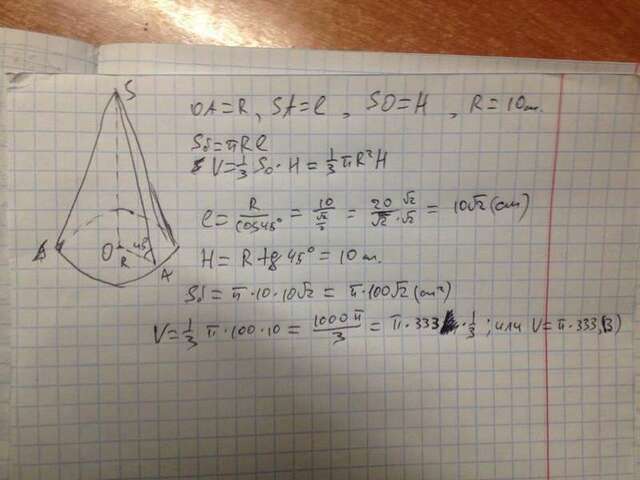 S
B
O
45°
R
A
OA=R, SA=l, SO=H, R=10см.
Sб=πRl
V=1/3 So·H=1/3 πR²H
l=R/cos45°=10/(√2/2)=20·√2/√2·√2=10√2(см)
H=R tg 45°=10см.
Sб=π·10·10√2=π·100√2(см²)
V=1/3 π·100·10=1000π/3=π·333·1/3; или V=π·333,(3)